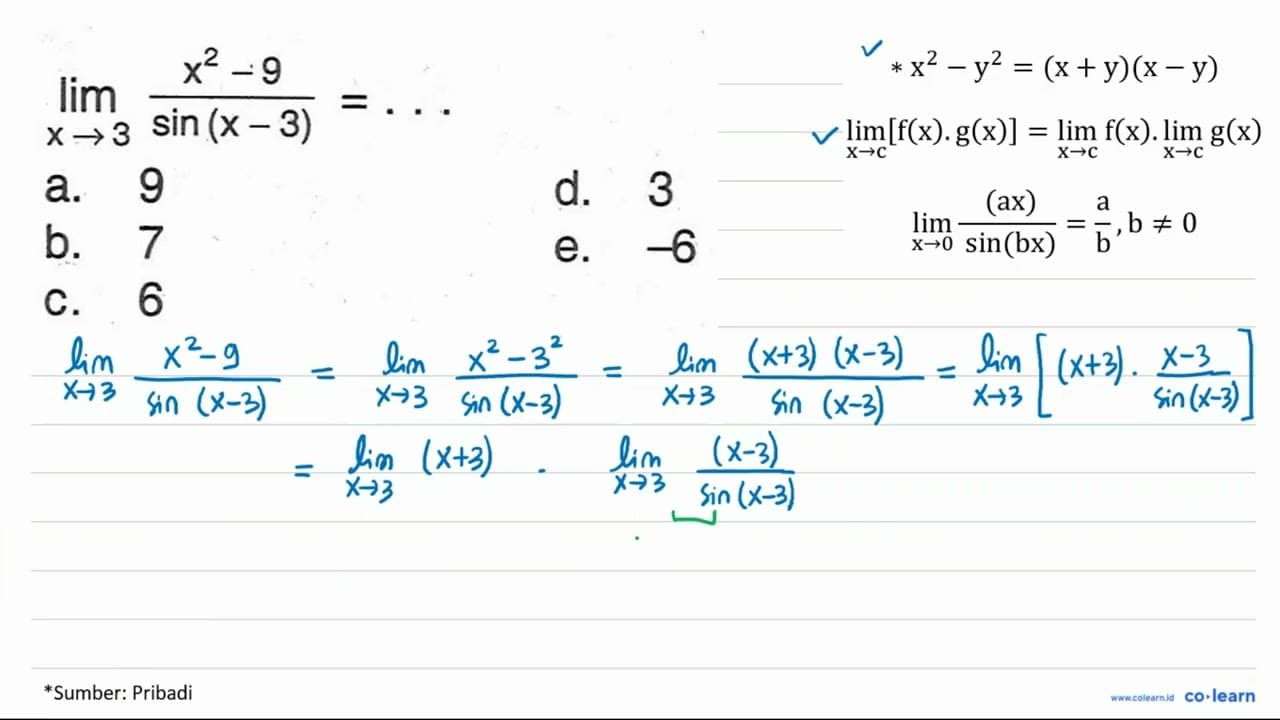 lim x→3 x² – 9 / sin (x – 3) = . . .
a. 9
b. 7
c. 6
d. 3
e. –6
* x² − y² = (x + y)(x − y)
lim x→c [f(x). g(x)] = lim x→c f(x). lim x→c g(x)
lim x→0 (ax) / sin(bx) = a/b , b ≠ 0
lim x→3 x²-9 / sin (x-3) = lim x→3 x²-3² / sin (x-3) = lim x→3 (x+3) (x-3) / sin (x-3) = lim x→3 [(x+3) . x-3 / sin (x-3)]
= lim x→3 (x+3) . lim x→3 (x-3) / sin (x-3)
*Sumber: Pribadi
www.colearn.id co·learn